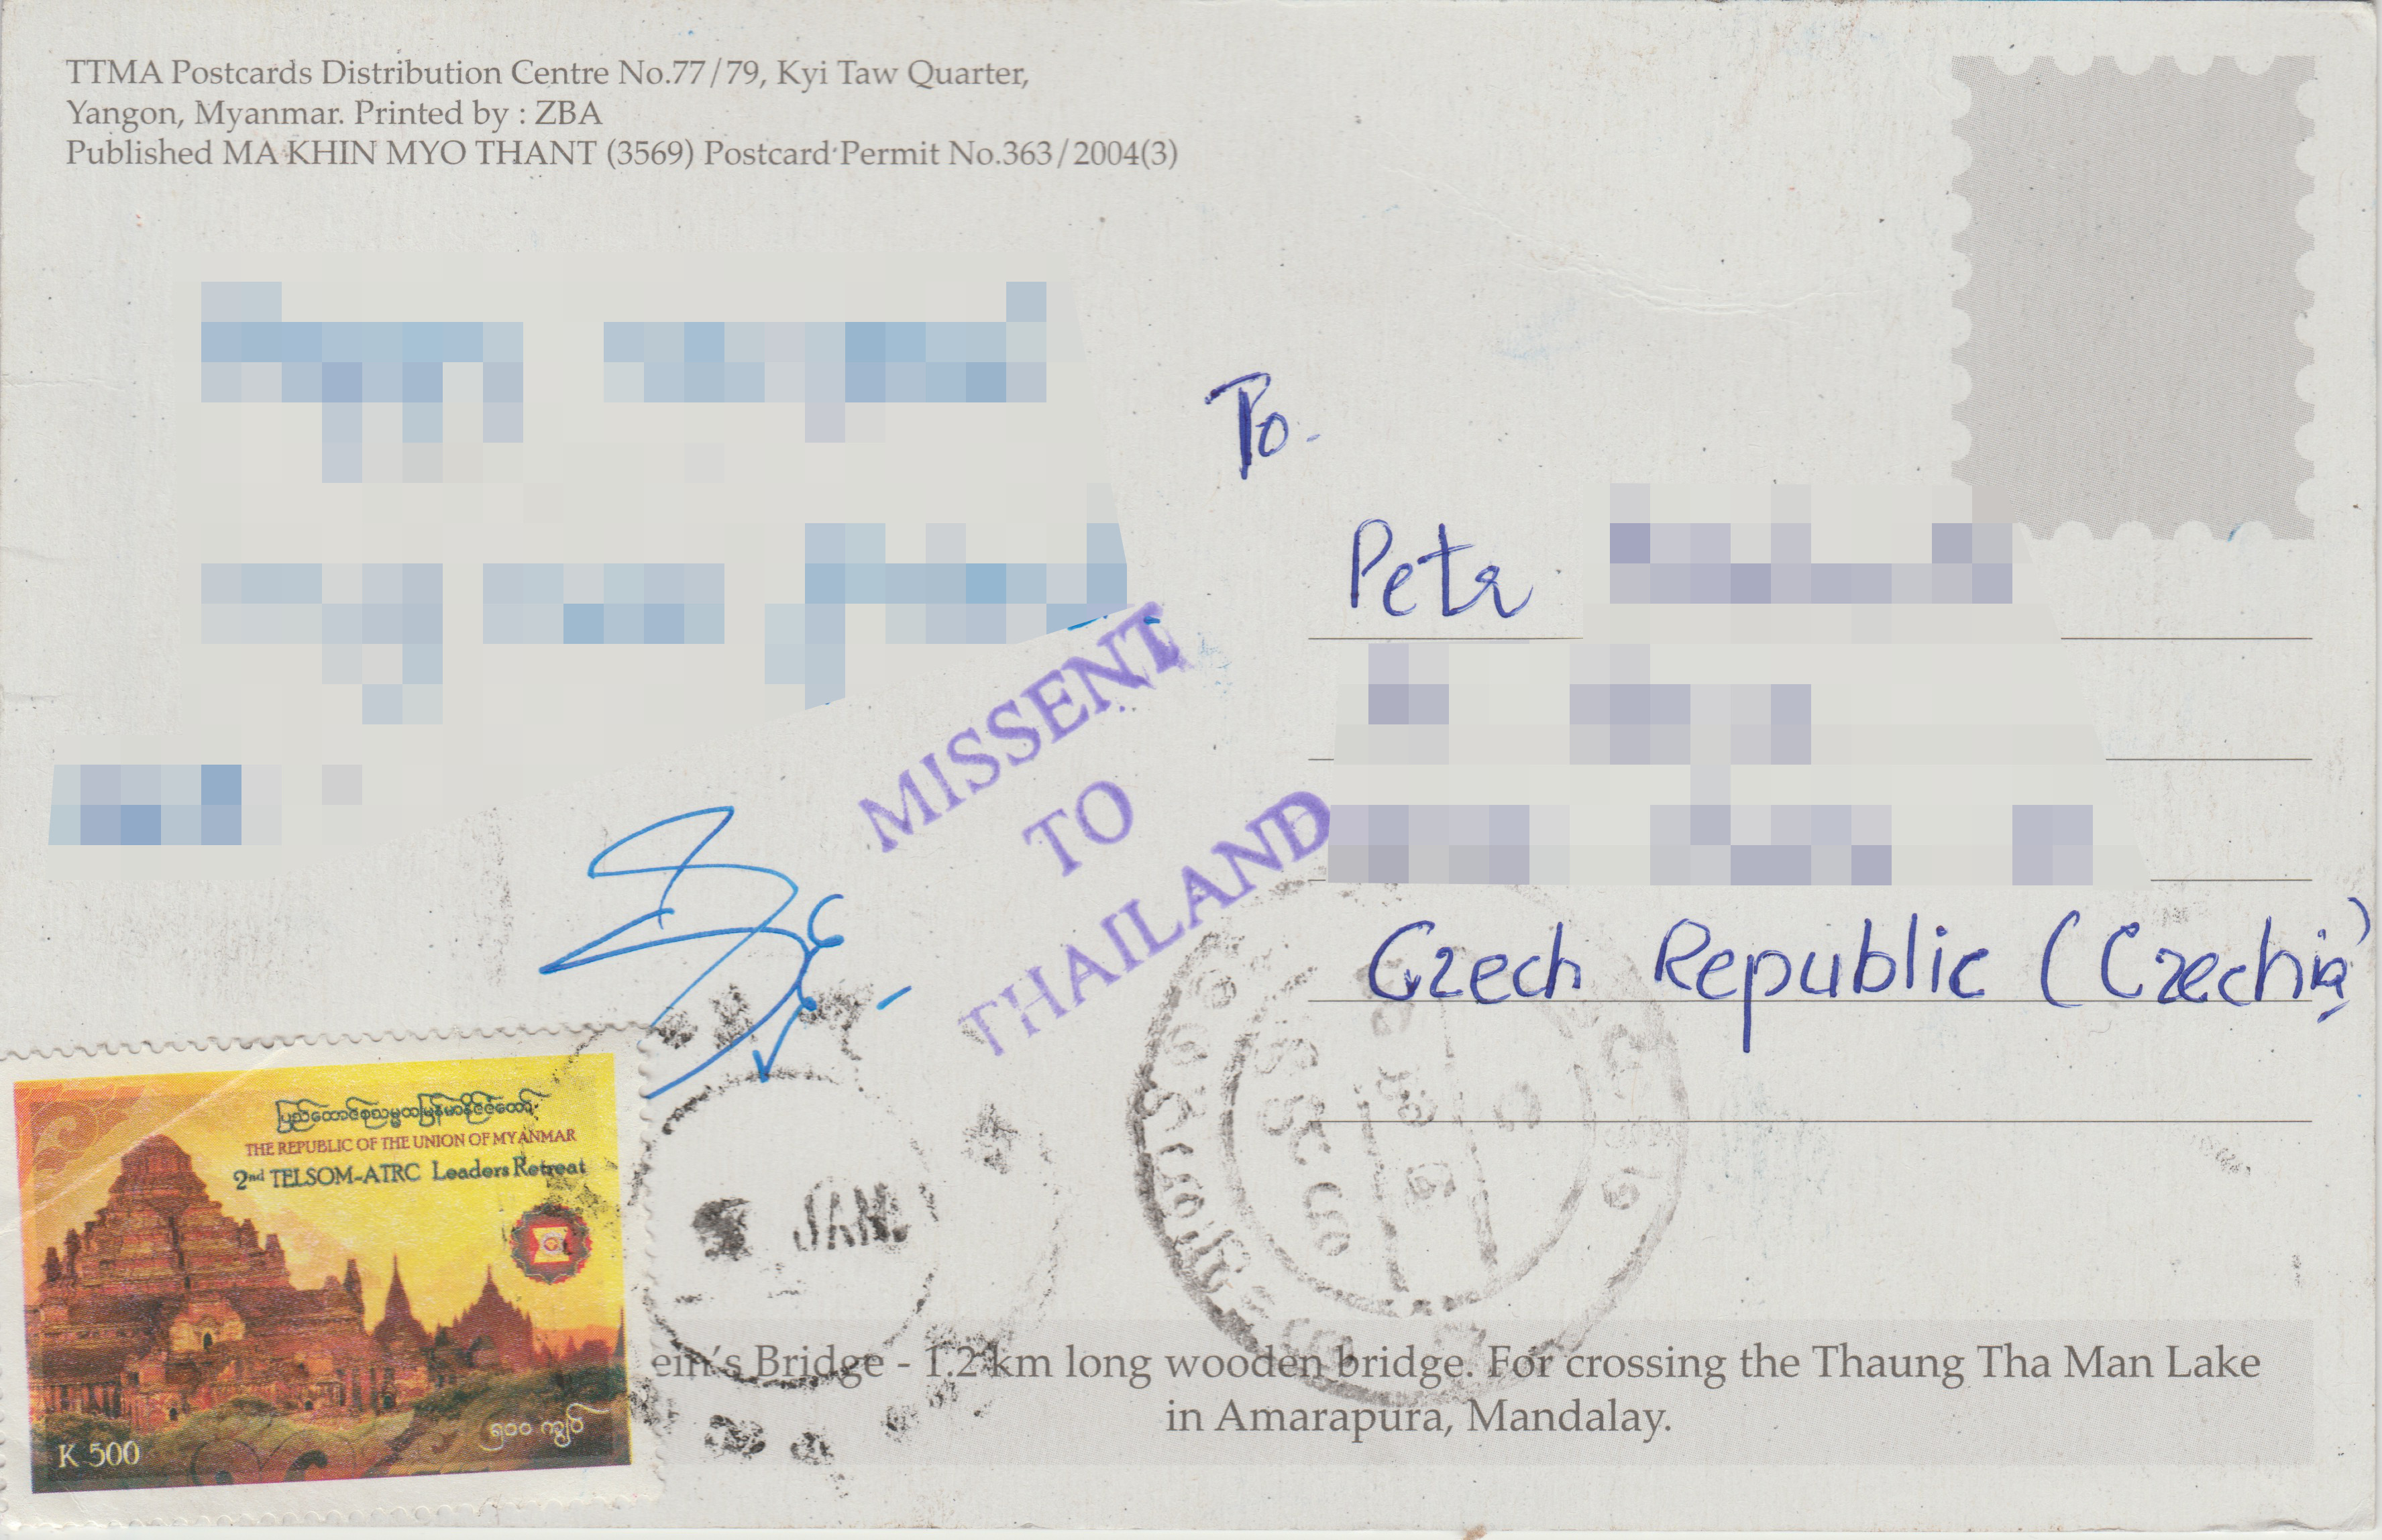 TTMA Postcards Distribution Centre No.77/79, Kyi Taw Quarter,
Yangon, Myanmar. Printed by : ZBA
Published MA KHIN MYO THANT (3569) Postcard Permit No.363/2004(3)
To.
Petr
Czech Republic (Czechia)
MISSENT
TO
THAILAND
ပြည်ထောင်စုသမ္မတမြန်မာနိုင်ငံတော်
THE REPUBLIC OF THE UNION OF MYANMAR
2nd TELSOM-ATRC Leaders Retreat
၅၀၀ ကျပ်
K 500
JAN.
ein's Bridge - 1.2 km long wooden bridge. For crossing the Thaung Tha Man Lake
in Amarapura, Mandalay.